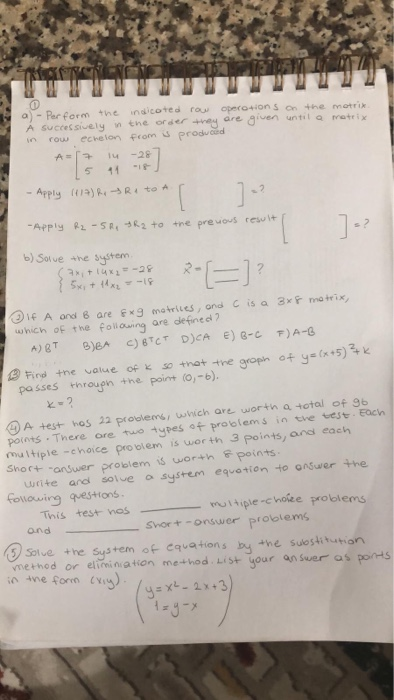 ①
a) - Perform the indicated row operations on the matrix
A successively in the order they are given until a matrix
in row echelon from is producd
A = [ 7 14 -28
5 11 -18 ]
- Apply (1/7) R1 → R1 to A [ ] = ?
- Apply R2 - 5R1 → R2 to the prevous result [ ] = ?
b) Solve the system
{ 7x1 + 14x2 = -28
5x1 + 11x2 = -18
x = [ = ] ?
② If A and B are 8x9 matrices, and C is a 3x8 matrix,
which of the following are defined?
A) BT B) BA C) BTCT D) CA E) B-C F) A-B
③ Find the value of k so that the graph of y=(x+5)²+k
passes through the point (0,-6).
k = ?
④ A test has 22 problems, which are worth a total of 96
points. There are two types of problems in the test. Each
multiple-choice problem is worth 3 points, and each
short-answer problem is worth 8 points.
Write and solve a system equation to answer the
following questions.
This test has ______ multiple-choice problems
and ______ short-answer problems
⑤ Solve the system of equations by the substitution
method or eliminiation method. List your answer as points
in the form (x,y).
( y = x² - 2x + 3
1 = y - x )